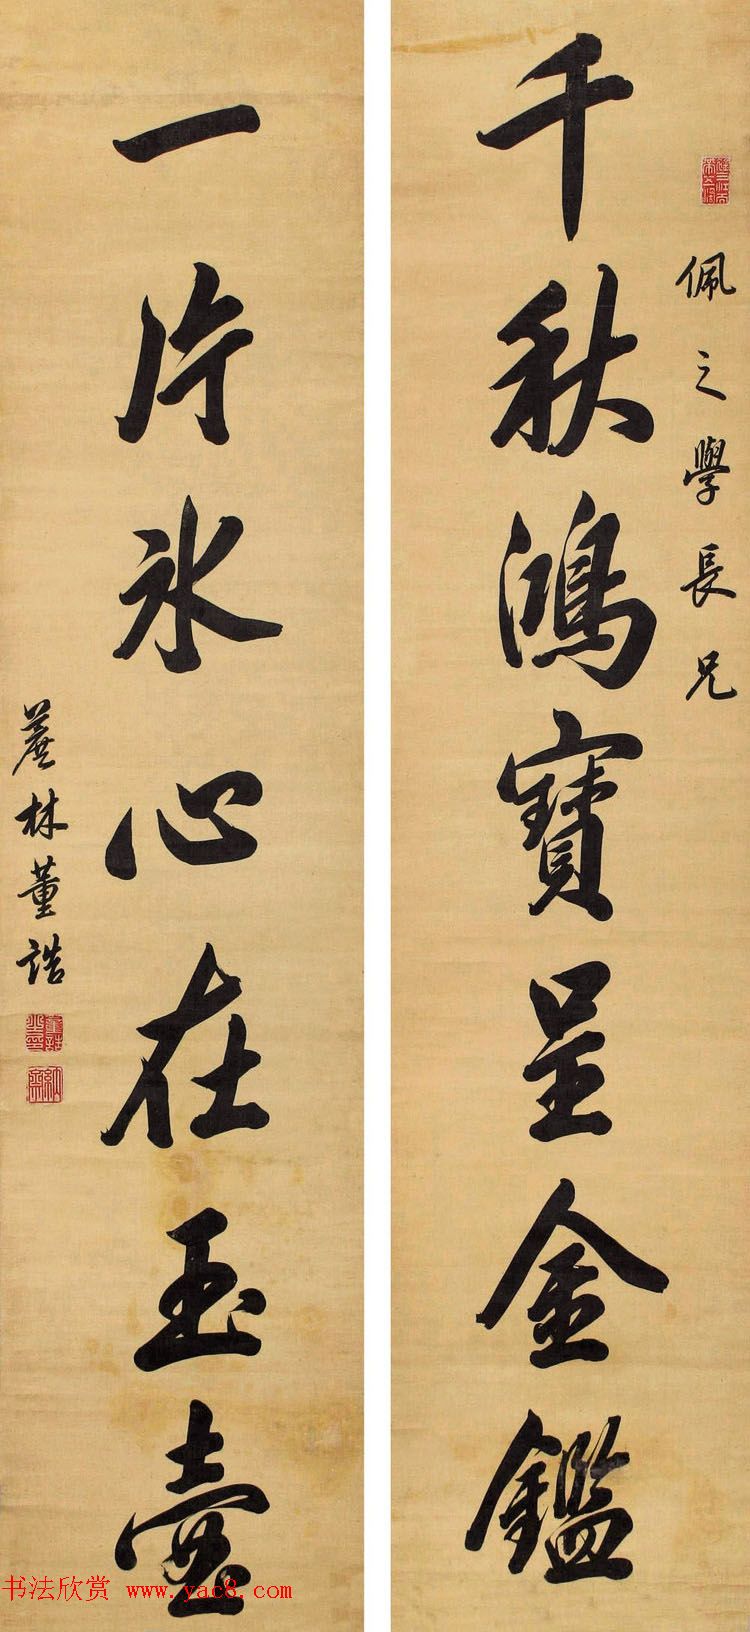 佩之學長兄
千秋鴻寶呈金鑑
一片冰心在玉壺
蔗林董誥
书法欣赏 www.yac8.com